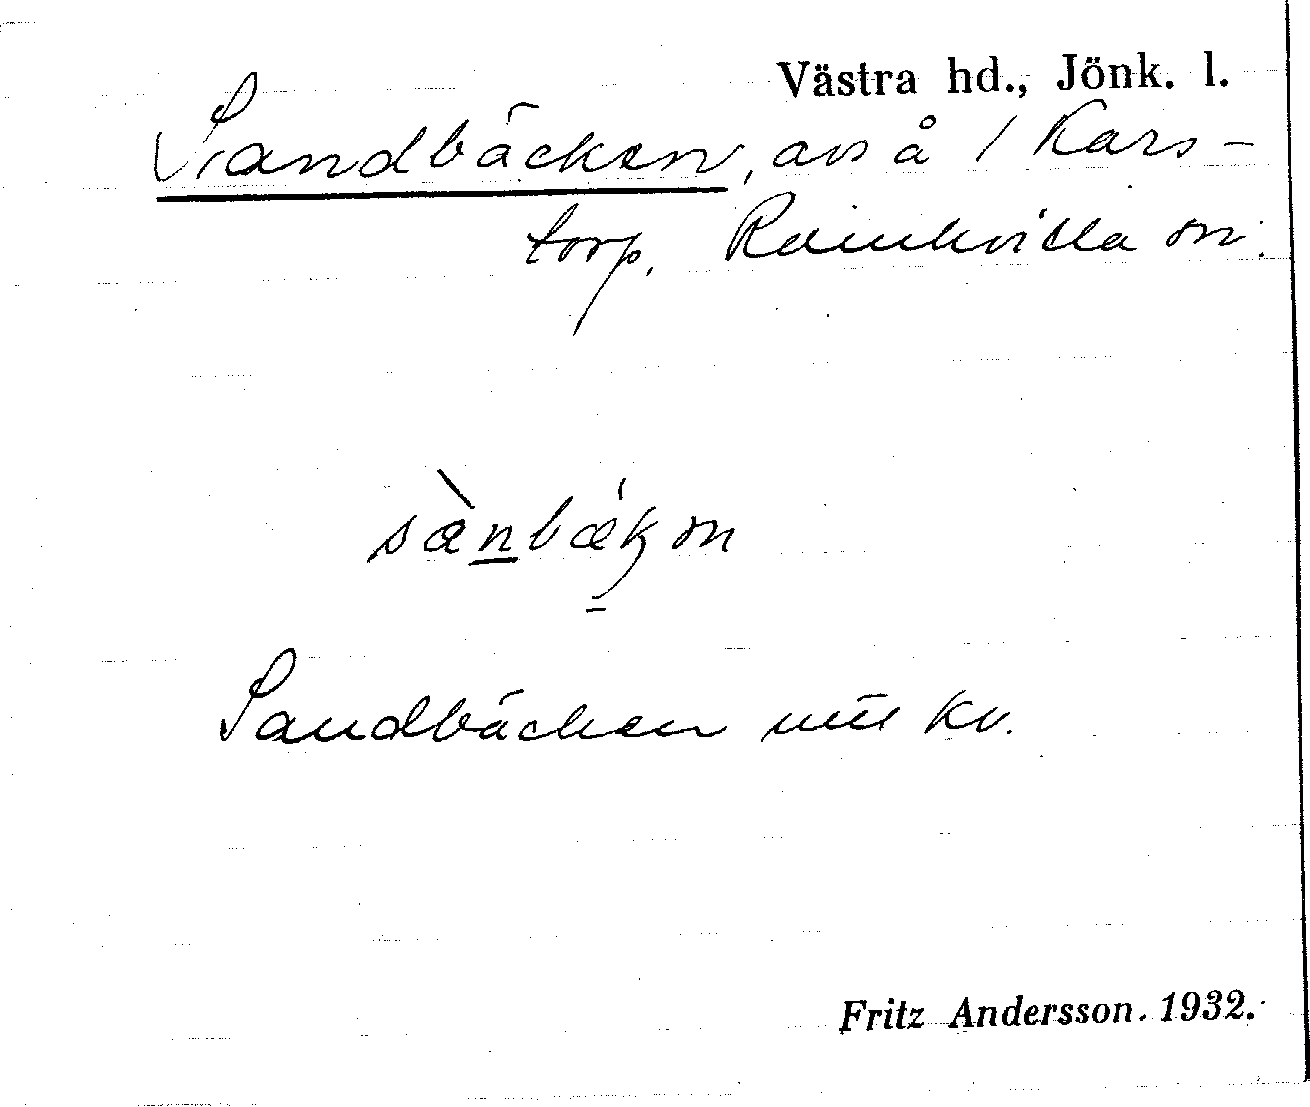 Västra hd., Jönk. l.
Sandbäcken, avs å / Kars-
torp, Ramkvilla sn.
sànbækən
Sandbäcken kv.
Fritz Andersson. 1932.